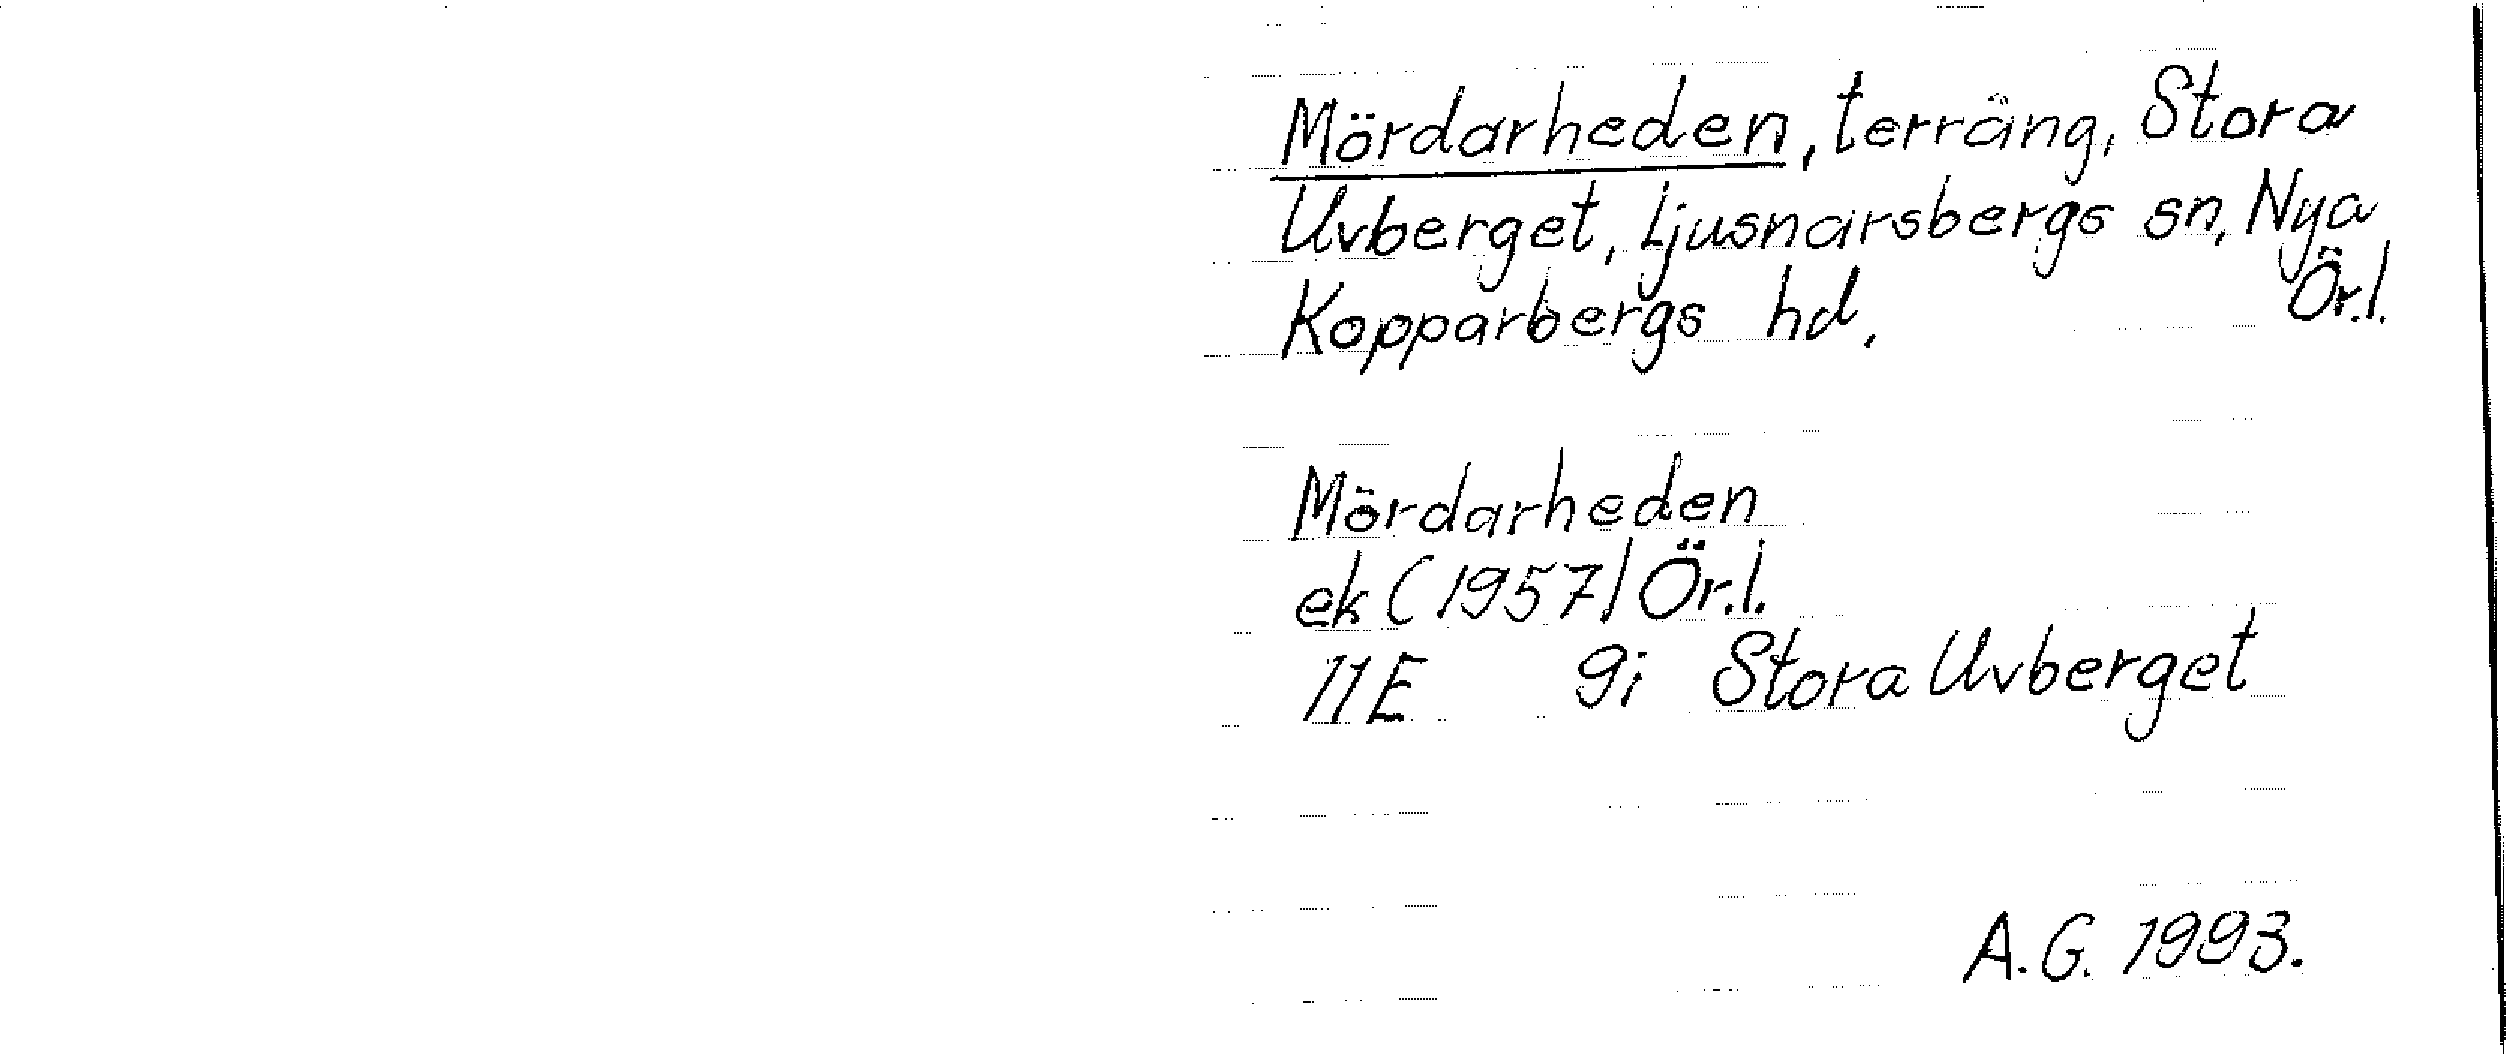 Mördarheden, terräng, Stora
Uvberget, Ljusnarsbergs sn, Nya
Kopparbergs hd, Ör.l.
Mördarheden
ek (1957) Ör.l.
11E 9i Stora Uvberget
A.G. 1993.